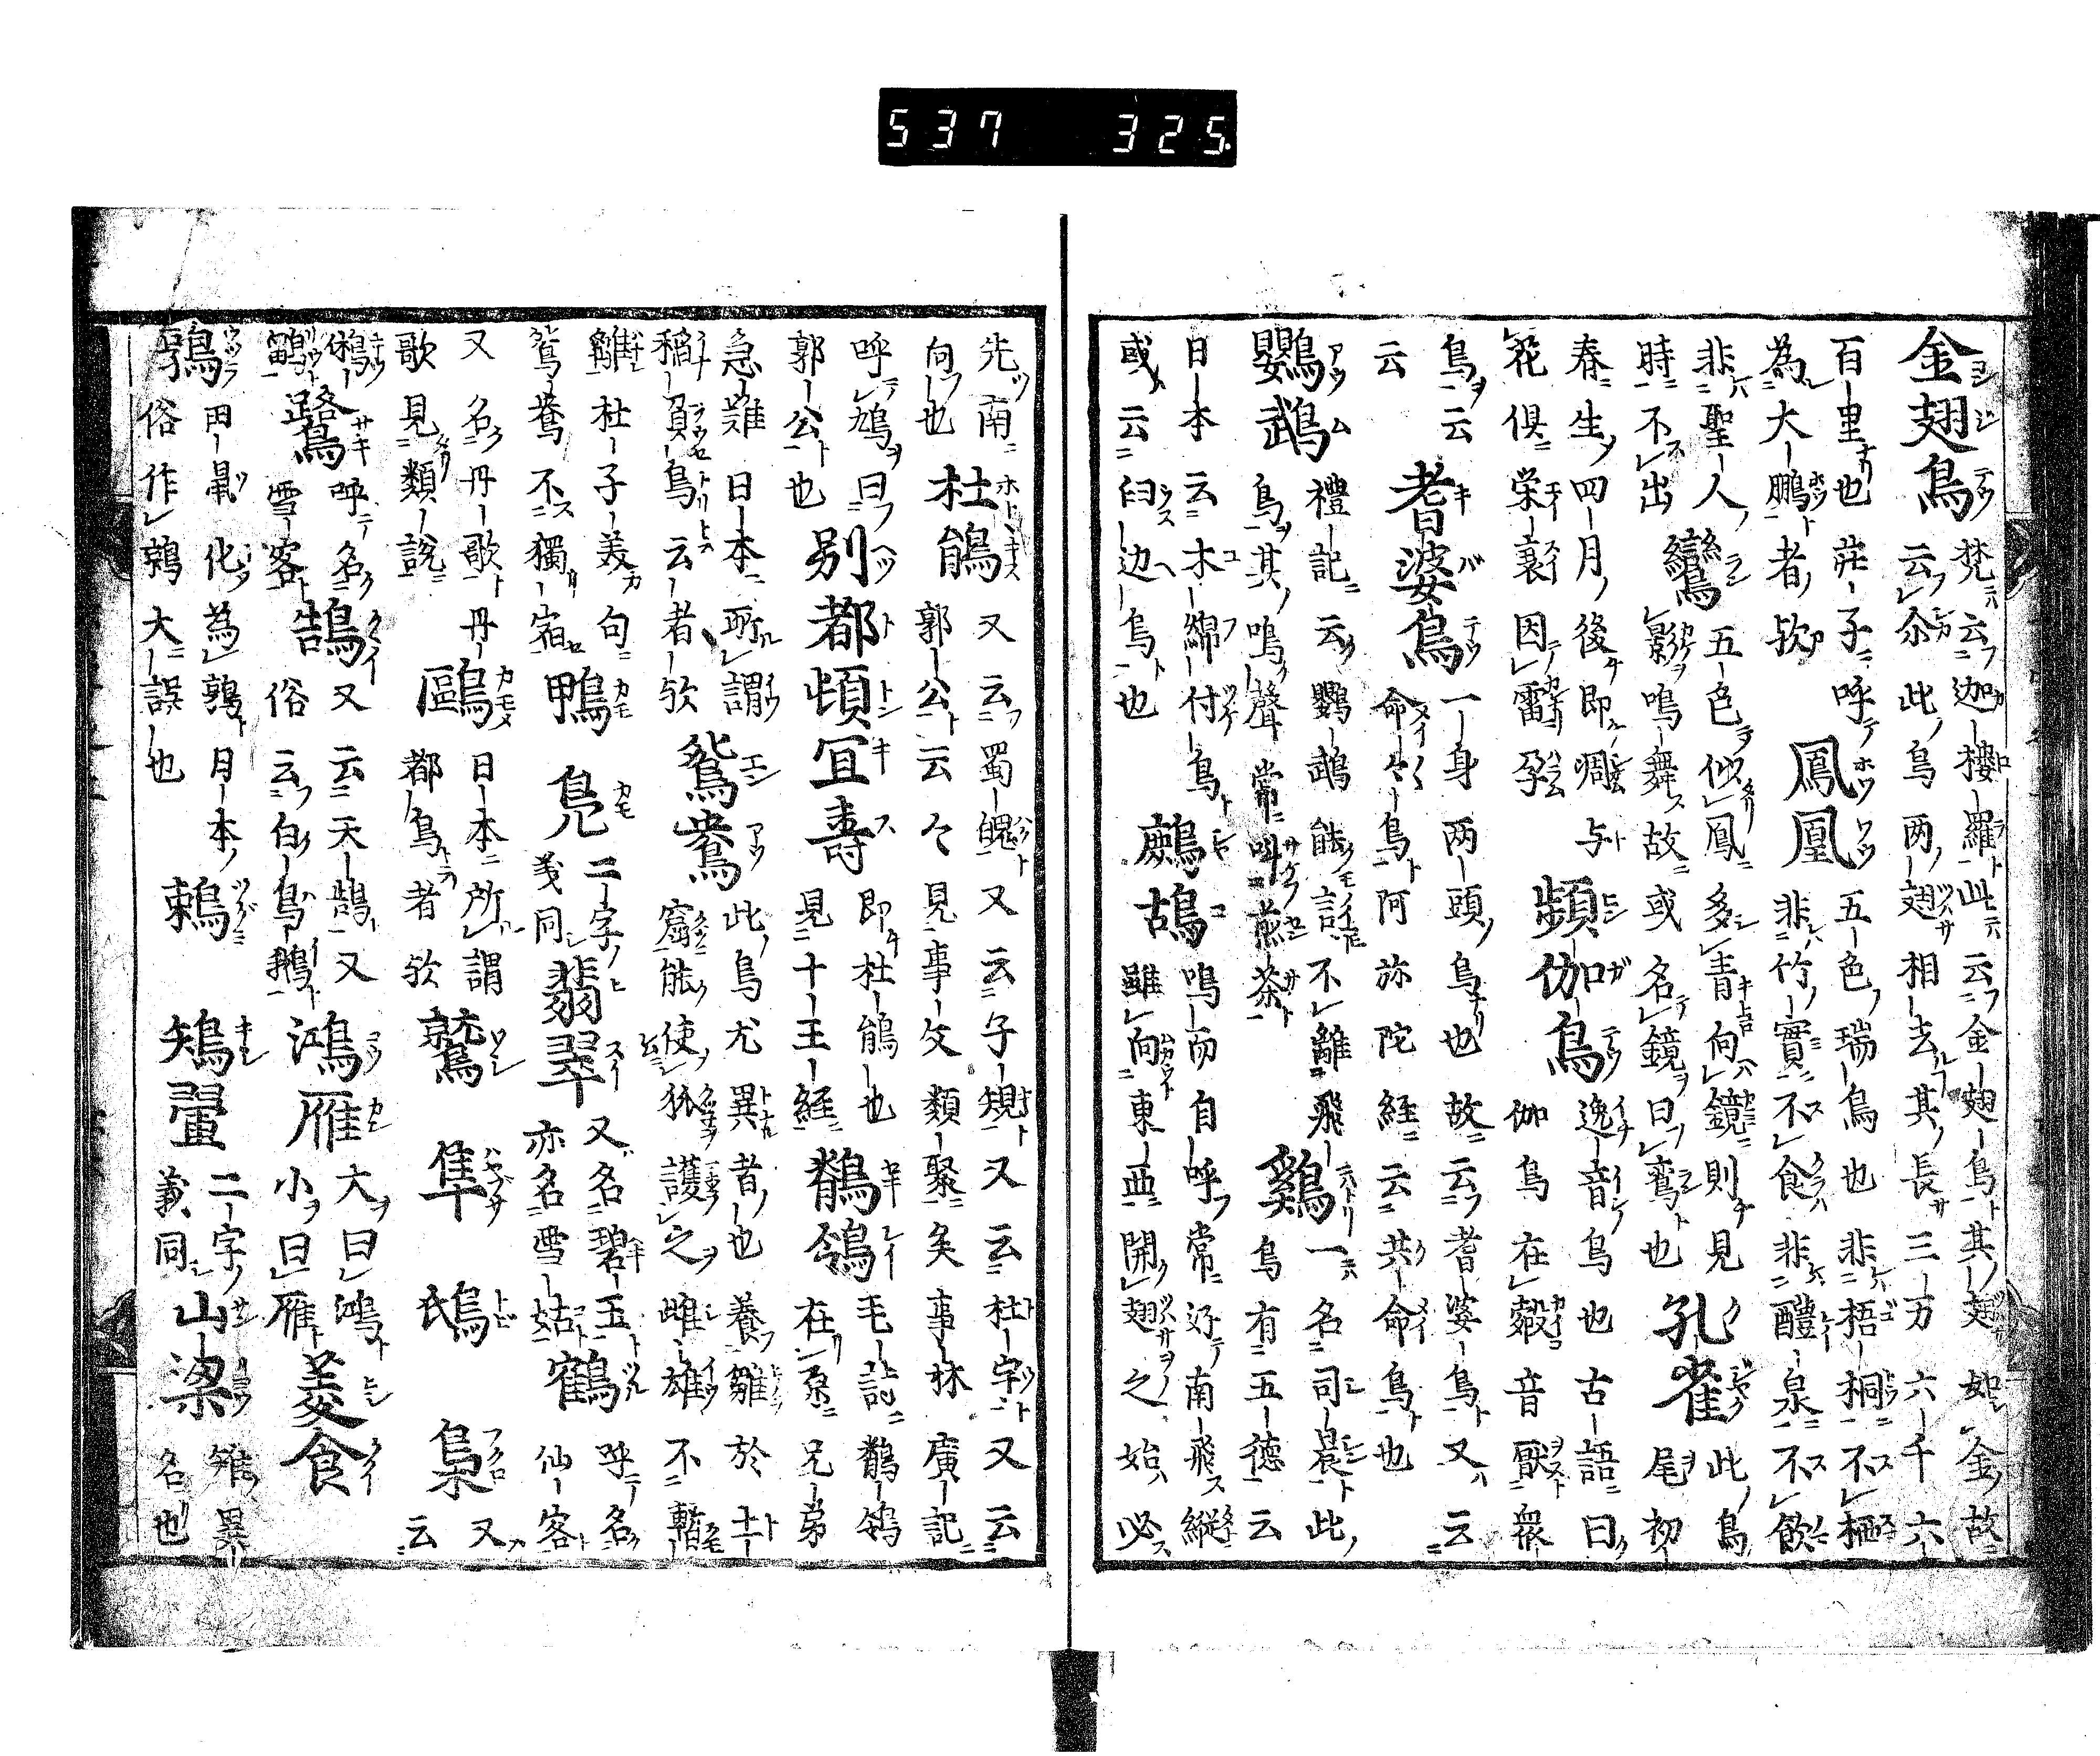 金翅鳥 梵云迦樓羅此云金翅鳥其翅如金故云尓此鳥両翅相去其長三万六千六
百里也莊子呼為大鵬者歟 鳳凰 五色瑞鳥也非梧桐不栖非竹實不食非醴泉不飲
非聖人時不出 鸞 五色似鳳多青向鏡則見影鳴舞故或名鏡曰鸞也 孔雀 此鳥尾初
春生四月後即凋与花俱栄衰因雷孕 頻伽鳥 逸音鳥也古語曰伽鳥在㲉音厭衆
鳥云云 耆婆鳥 一身両頭鳥也故云耆婆鳥又云命々鳥阿弥陀経云共命鳥也
鸚鵡 禮記云鸚鵡能言不離飛鳥其鳴聲常叫煎茶 鷄 一名司晨此鳥有五徳云
日本云木綿付鳥或云臼辺鳥也 鷓鴣 鳴而自呼常好南飛縦雖向東西開翅之始必
先南向也 杜鵑 又云蜀魄又云子規又云杜宇又云郭公云々見事文類聚矣事林廣記
呼鳩曰郭公也 別都頓宜壽 即杜鵑也見十王経 鶺鴒 毛詩鶺鴒在原兄弟
急難日本所謂稲負鳥云者歟 鴛鴦 此鳥尤異者也養雛於土窟能使狐護之雌雄不暫
離杜子美句鴛鴦不獨宿 鴨 鳧 二字義同 翡翠 又名碧玉亦名雪姑 鶴 呼名仙客
又名丹歌丹歌見類説 鷗 日本所謂都鳥者歟 鷲 隼 鵄 梟 又云
鵂鶹 鷺 呼名雪客 鵠 又云天鵠又俗云白鳥鵝 鴻雁 大曰鴻小曰雁 菱食
鶉 田鼠化為鶉日本俗作大誤也 鶇 雉 翬 二字義同 山梁 雉異名也
537 325